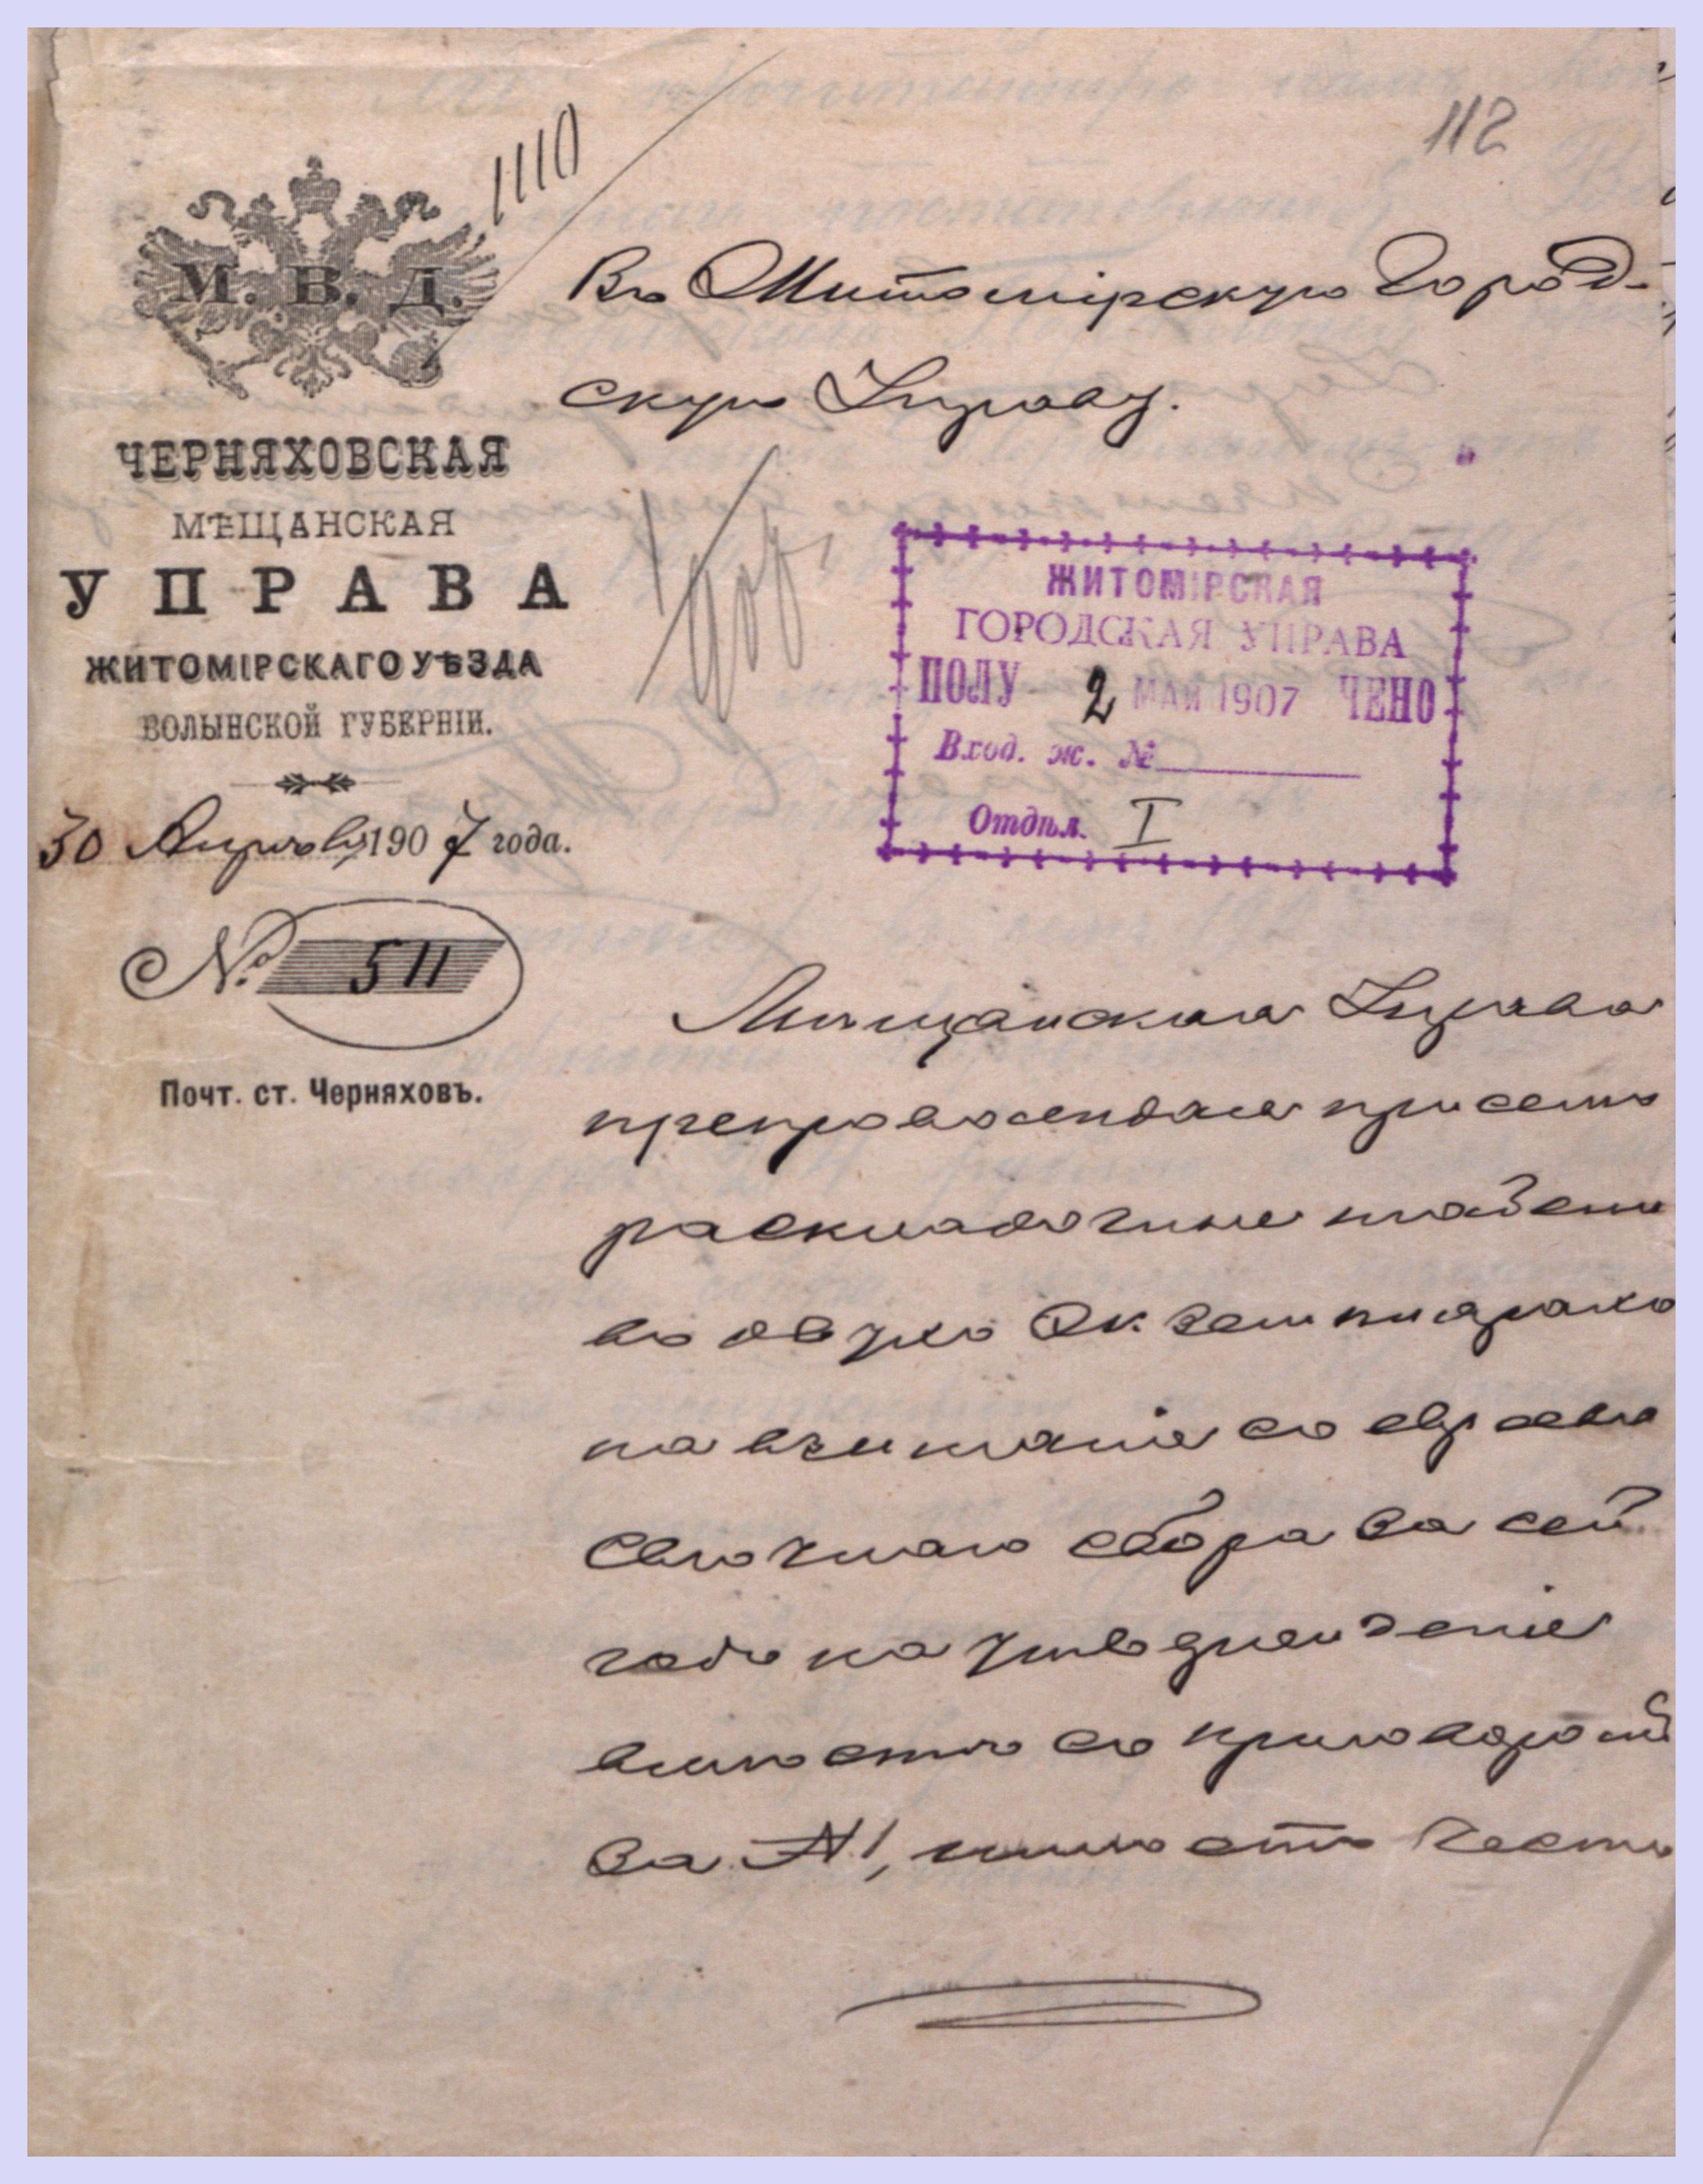 1110
112
М. В. Д.
ЧЕРНЯХОВСКАЯ
МѢЩАНСКАЯ
УПРАВА
ЖИТОМІРСКАГО УѢЗДА
ВОЛЫНСКОЙ ГУБЕРНІИ.
30 Апрѣля 1907 года.
№ 511
Почт. ст. Черняховъ.
Въ Житомірскую Город-
скую Управу.
ЖИТОМІРСКАЯ
ГОРОДСКАЯ УПРАВА
ПОЛУ 2 МАЙ 1907 ЧЕНО
Вход. ж. №
Отдѣл. I
Мѣщанская Управа
препровождая при семъ
раскладочные табели
въ двухъ экземплярахъ
на взиманіе съ евреевъ
свѣчнаго сбора за сей
годъ на утвержденіе
вмѣстѣ съ приговоромъ
за №1, имѣетъ честь